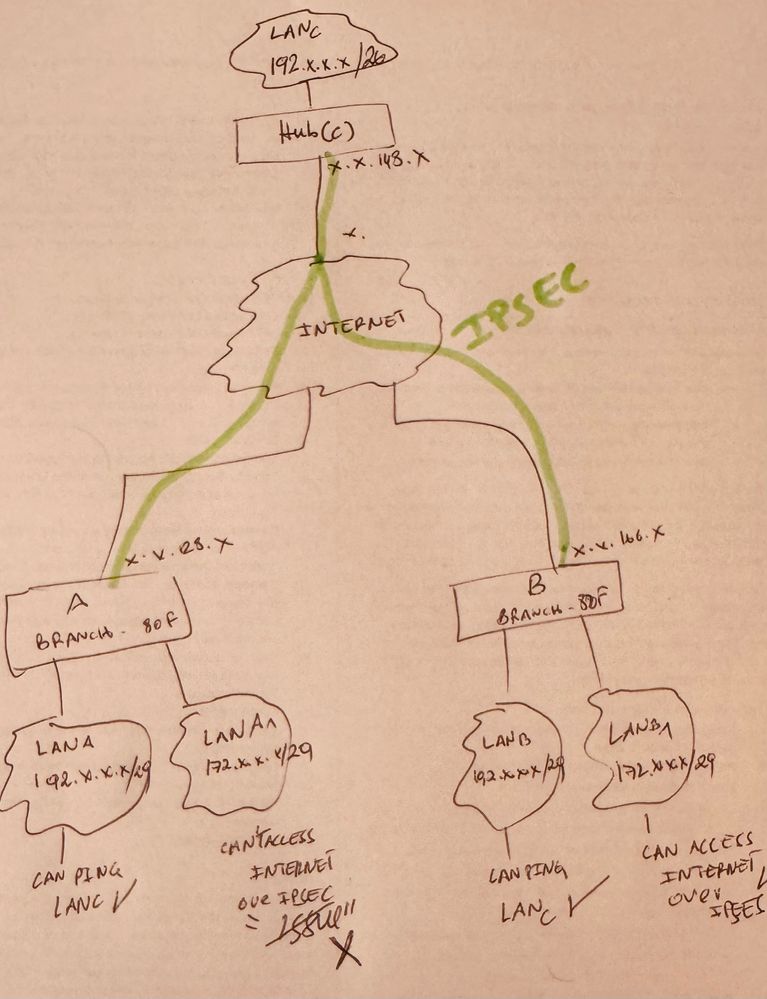 LANC
192.x.x.x/26
Hub(c)
x.x.148.x
x.
INTERNET
IPSEC
x.x.28.x
x.x.166.x
A
BRANCH - 80F
B
BRANCH - 80F
LANA
192.x.x.x/29
LANA1
172.x.x.x/29
LANB
192.x.x.x/29
LANB1
172.x.x.x/29
CAN PING
LANC ✓
CAN'T ACCESS
INTERNET
OVE IPSEC
= ISSUE"
X
CAN PING
LANC ✓
CAN ACCESS
INTERNET ✓
OVER
IPSEC